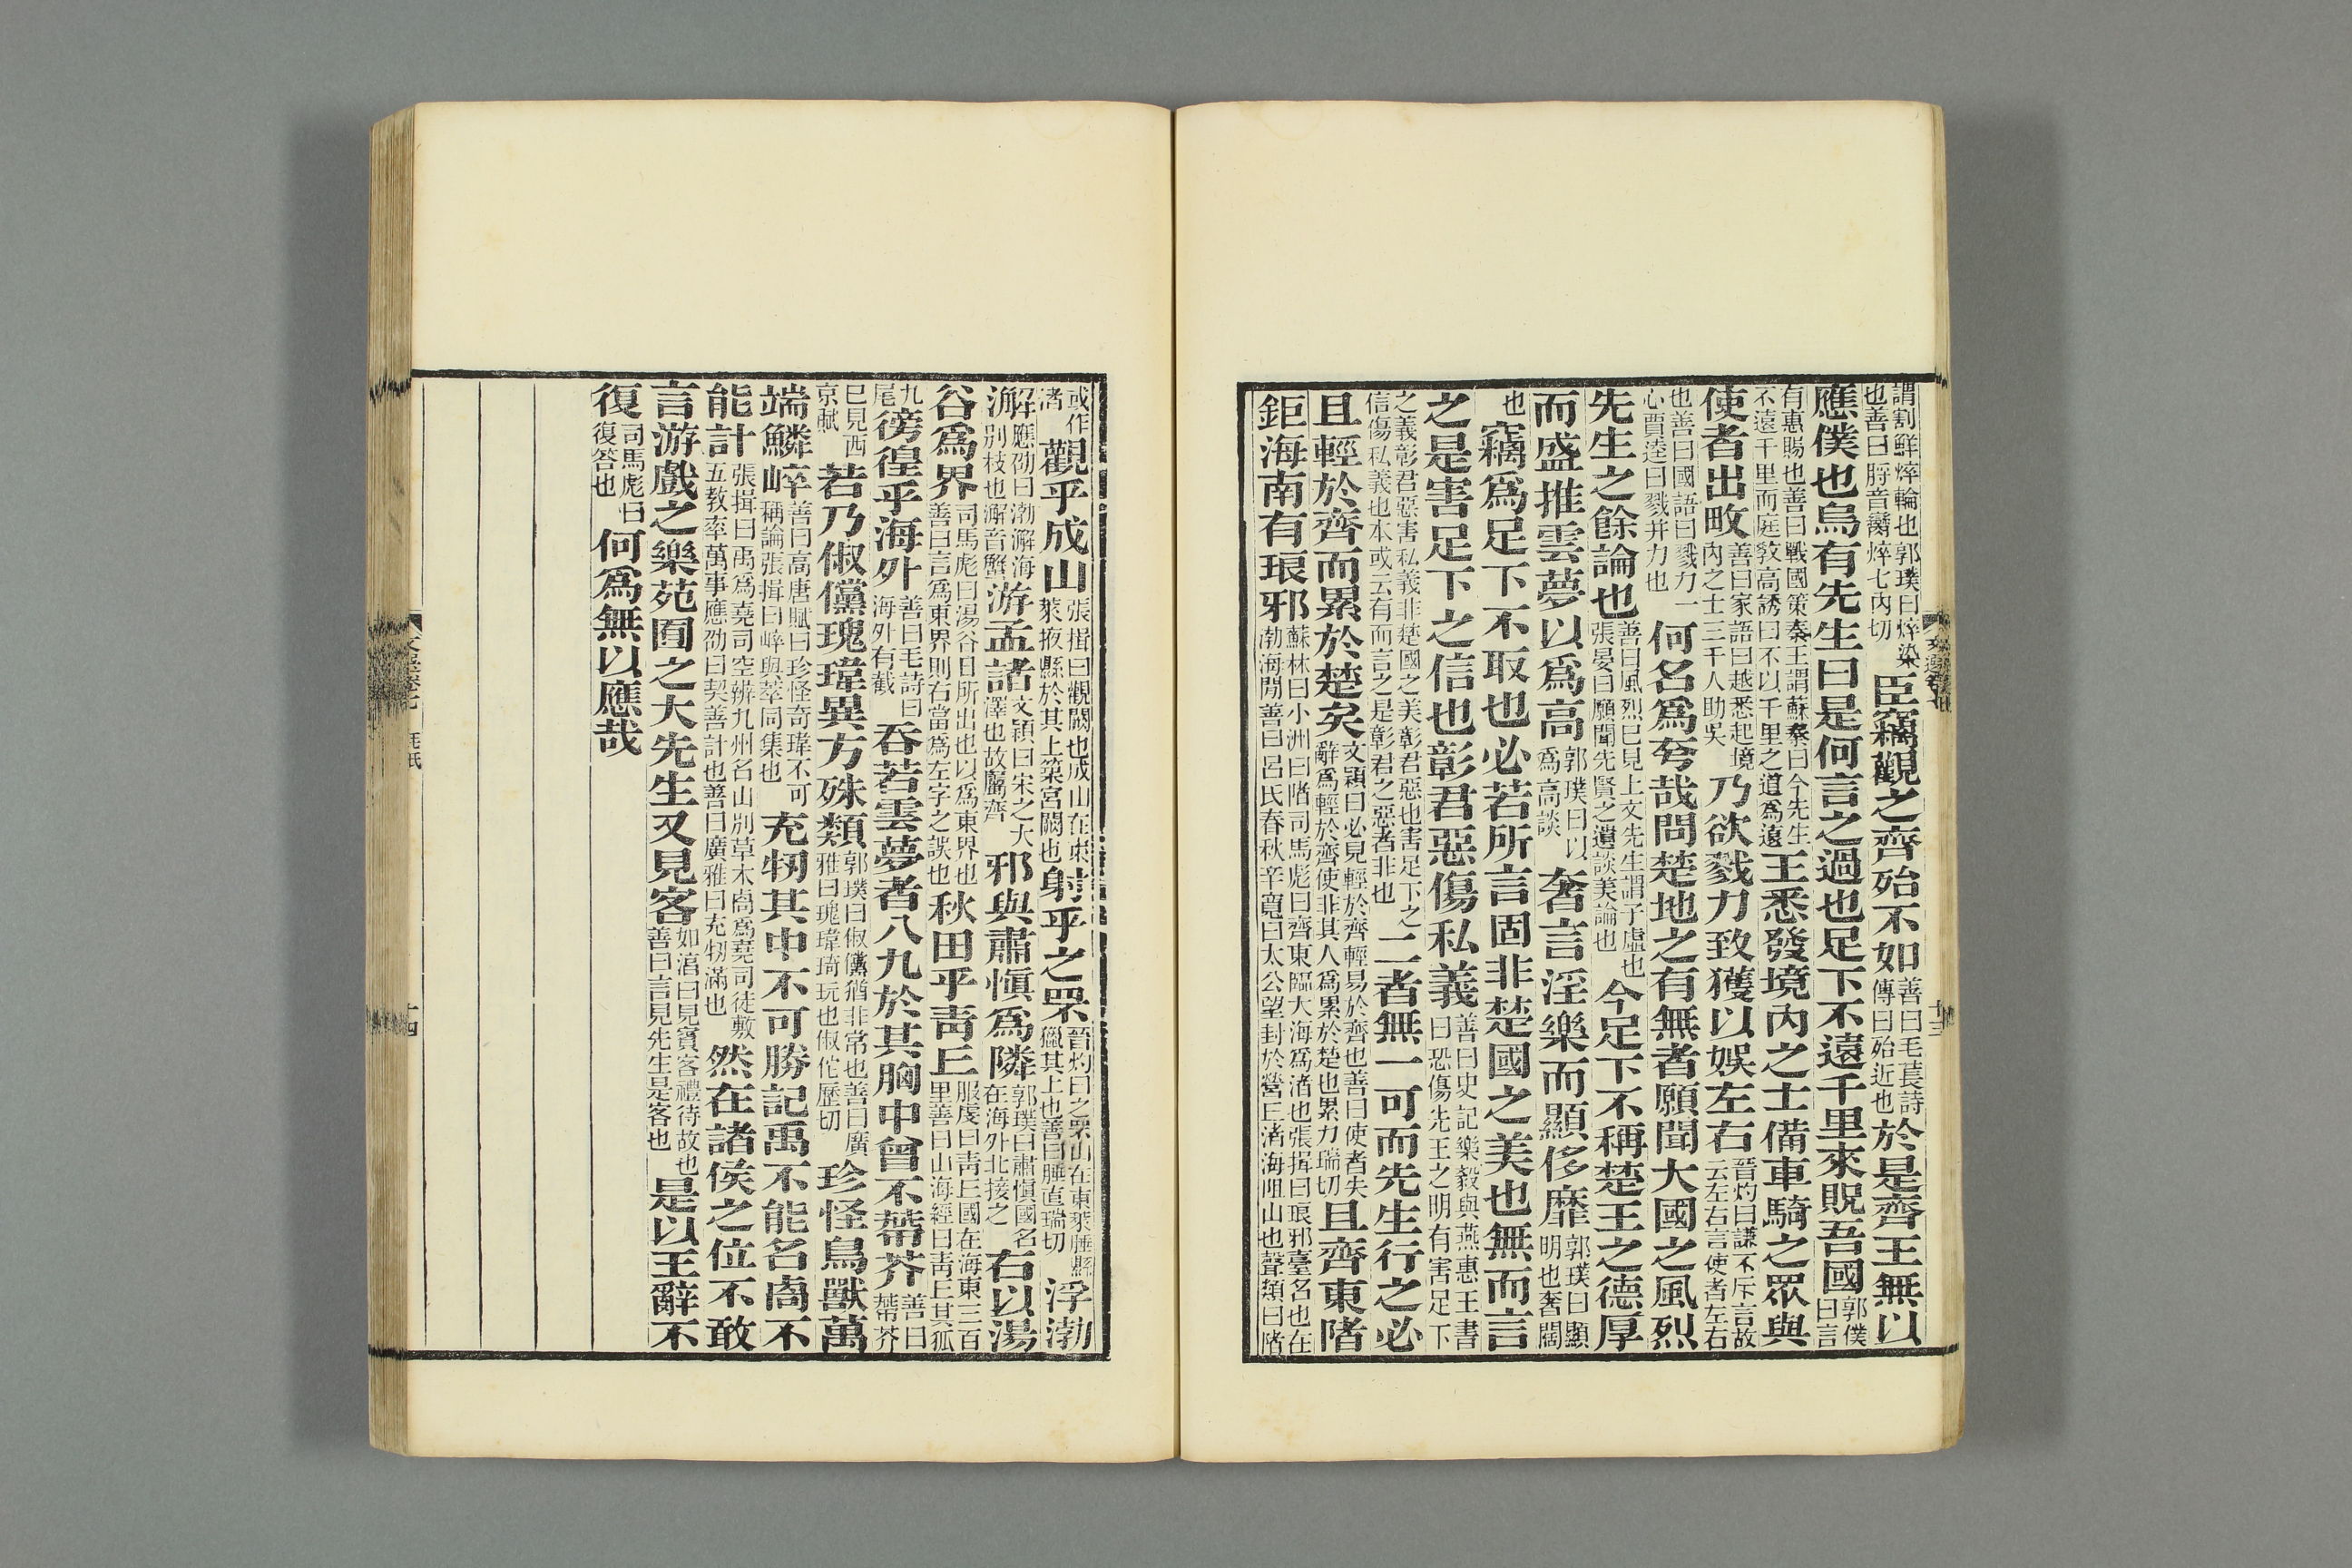 謂割鮮焠輪也郭璞曰焠染也善曰脟音臠焠七內切臣竊觀之齊殆不如善曰毛萇詩傳曰殆近也於是齊王無以
應僕也烏有先生曰是何言之過也足下不遠千里來貺吾國郭僕曰言
有惠賜也善曰戰國策秦王謂蘇秦曰今先生不遠千里而庭教高誘曰不以千里之道爲遠王悉發境內之士備車騎之眾與
使者出畋善曰家語曰越悉起境內之士三千人助吳乃欲戮力致獲以娛左右晉灼曰謙不斥言故云左右言使者左右
也善曰國語曰戮力一心賈逵曰戮并力也何名爲夸哉問楚地之有無者願聞大國之風烈
先生之餘論也善曰風烈已見上文先生謂子虛也張晏曰願聞先賢之遺談美論也今足下不稱楚王之德厚
而盛推雲夢以爲高郭璞曰以爲高談奢言淫樂而顯侈靡郭璞曰顯明也奢闊
也竊爲足下不取也必若所言固非楚國之美也無而言
之是害足下之信也彰君惡傷私義善曰史記樂毅與燕惠王書曰恐傷先王之明有害足下
之義彰君惡害私義非楚國之美彰君惡也害足下之信傷私義也本或云有而言之是彰君之惡者非也二者無一可而先生行之必
且輕於齊而累於楚矣文穎曰必見輕於齊輕易於齊也善曰使者失辭爲輕於齊使非其人爲累於楚也累力瑞切且齊東陼
鉅海南有琅邪蘇林曰小洲曰陼司馬彪曰齊東臨大海爲渚也張揖曰琅邪臺名也在渤海閒善曰呂氏春秋辛寬曰太公望封於營丘渚海岨山也聲類曰陼
或作渚觀乎成山張揖曰觀闕也成山在東萊掖縣於其上築宮闕也射乎之罘晉灼曰之罘山在東萊腄縣獵其上也善曰腄直瑞切浮渤
澥應劭曰渤澥海別枝也澥音蟹游孟諸文穎曰宋之大澤也故屬齊邪與肅慎爲隣郭璞曰肅慎國名在海外北接之右以湯
谷爲界司馬彪曰湯谷日所出也以爲東界也善曰言爲東界則右當爲左字之誤也秋田乎青丘服虔曰青丘國在海東三百里善曰山海經曰青丘其狐
九尾徬徨乎海外善曰毛詩曰海外有截吞若雲夢者八九於其胸中曾不蔕芥善曰蔕芥
已見西京賦若乃俶儻瑰瑋異方殊類郭璞曰俶儻猶非常也善曰廣雅曰瑰瑋琦玩也俶佗歷切珍怪鳥獸萬
端鱗崪善曰高唐賦曰珍怪奇瑋不可稱論張揖曰崪與萃同集也充牣其中不可勝記禹不能名卨不
能計張揖曰禹爲堯司空辨九州名山別草木卨爲堯司徒敷五教率萬事應劭曰契善計也善曰廣雅曰充牣滿也然在諸侯之位不敢
言游戲之樂苑囿之大先生又見客如淳曰見賓客禮待故也善曰言見先生是客也是以王辭不
復司馬彪曰復答也何爲無以應哉
十四